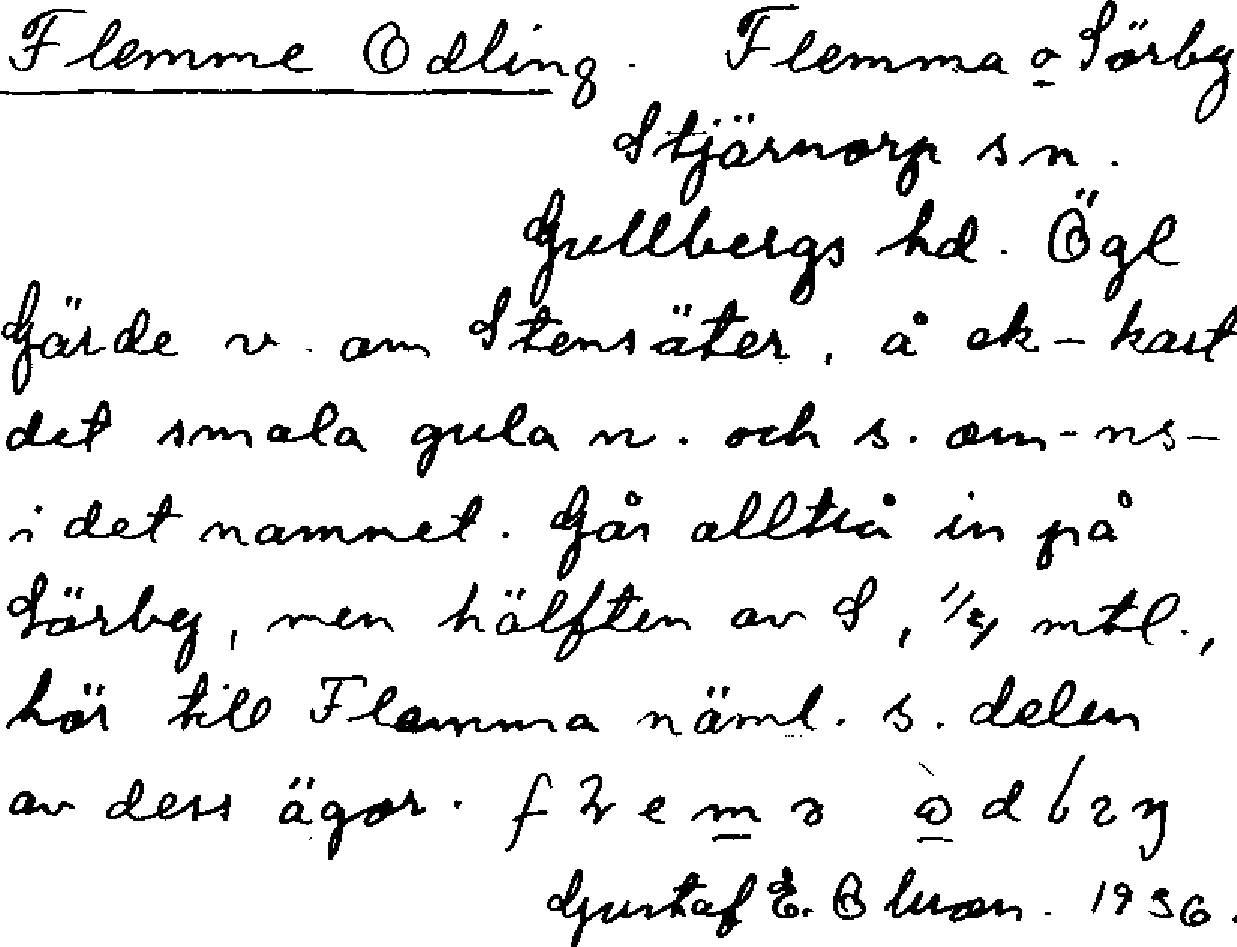 Flemme Odling. Flemma o Sörby
Stjärnorp sn.
Gullbergs hd. Ögl
Gärde v. om Stensäter, å ek-kart
det smala gula n. och s. om -ns-
i det namnet. Går alltså in på
Sörby, men hälften av S, mtl.,
hör till Flemma näml. s. delen
av dess ägor.
Gustaf E. Olsson. 1936.